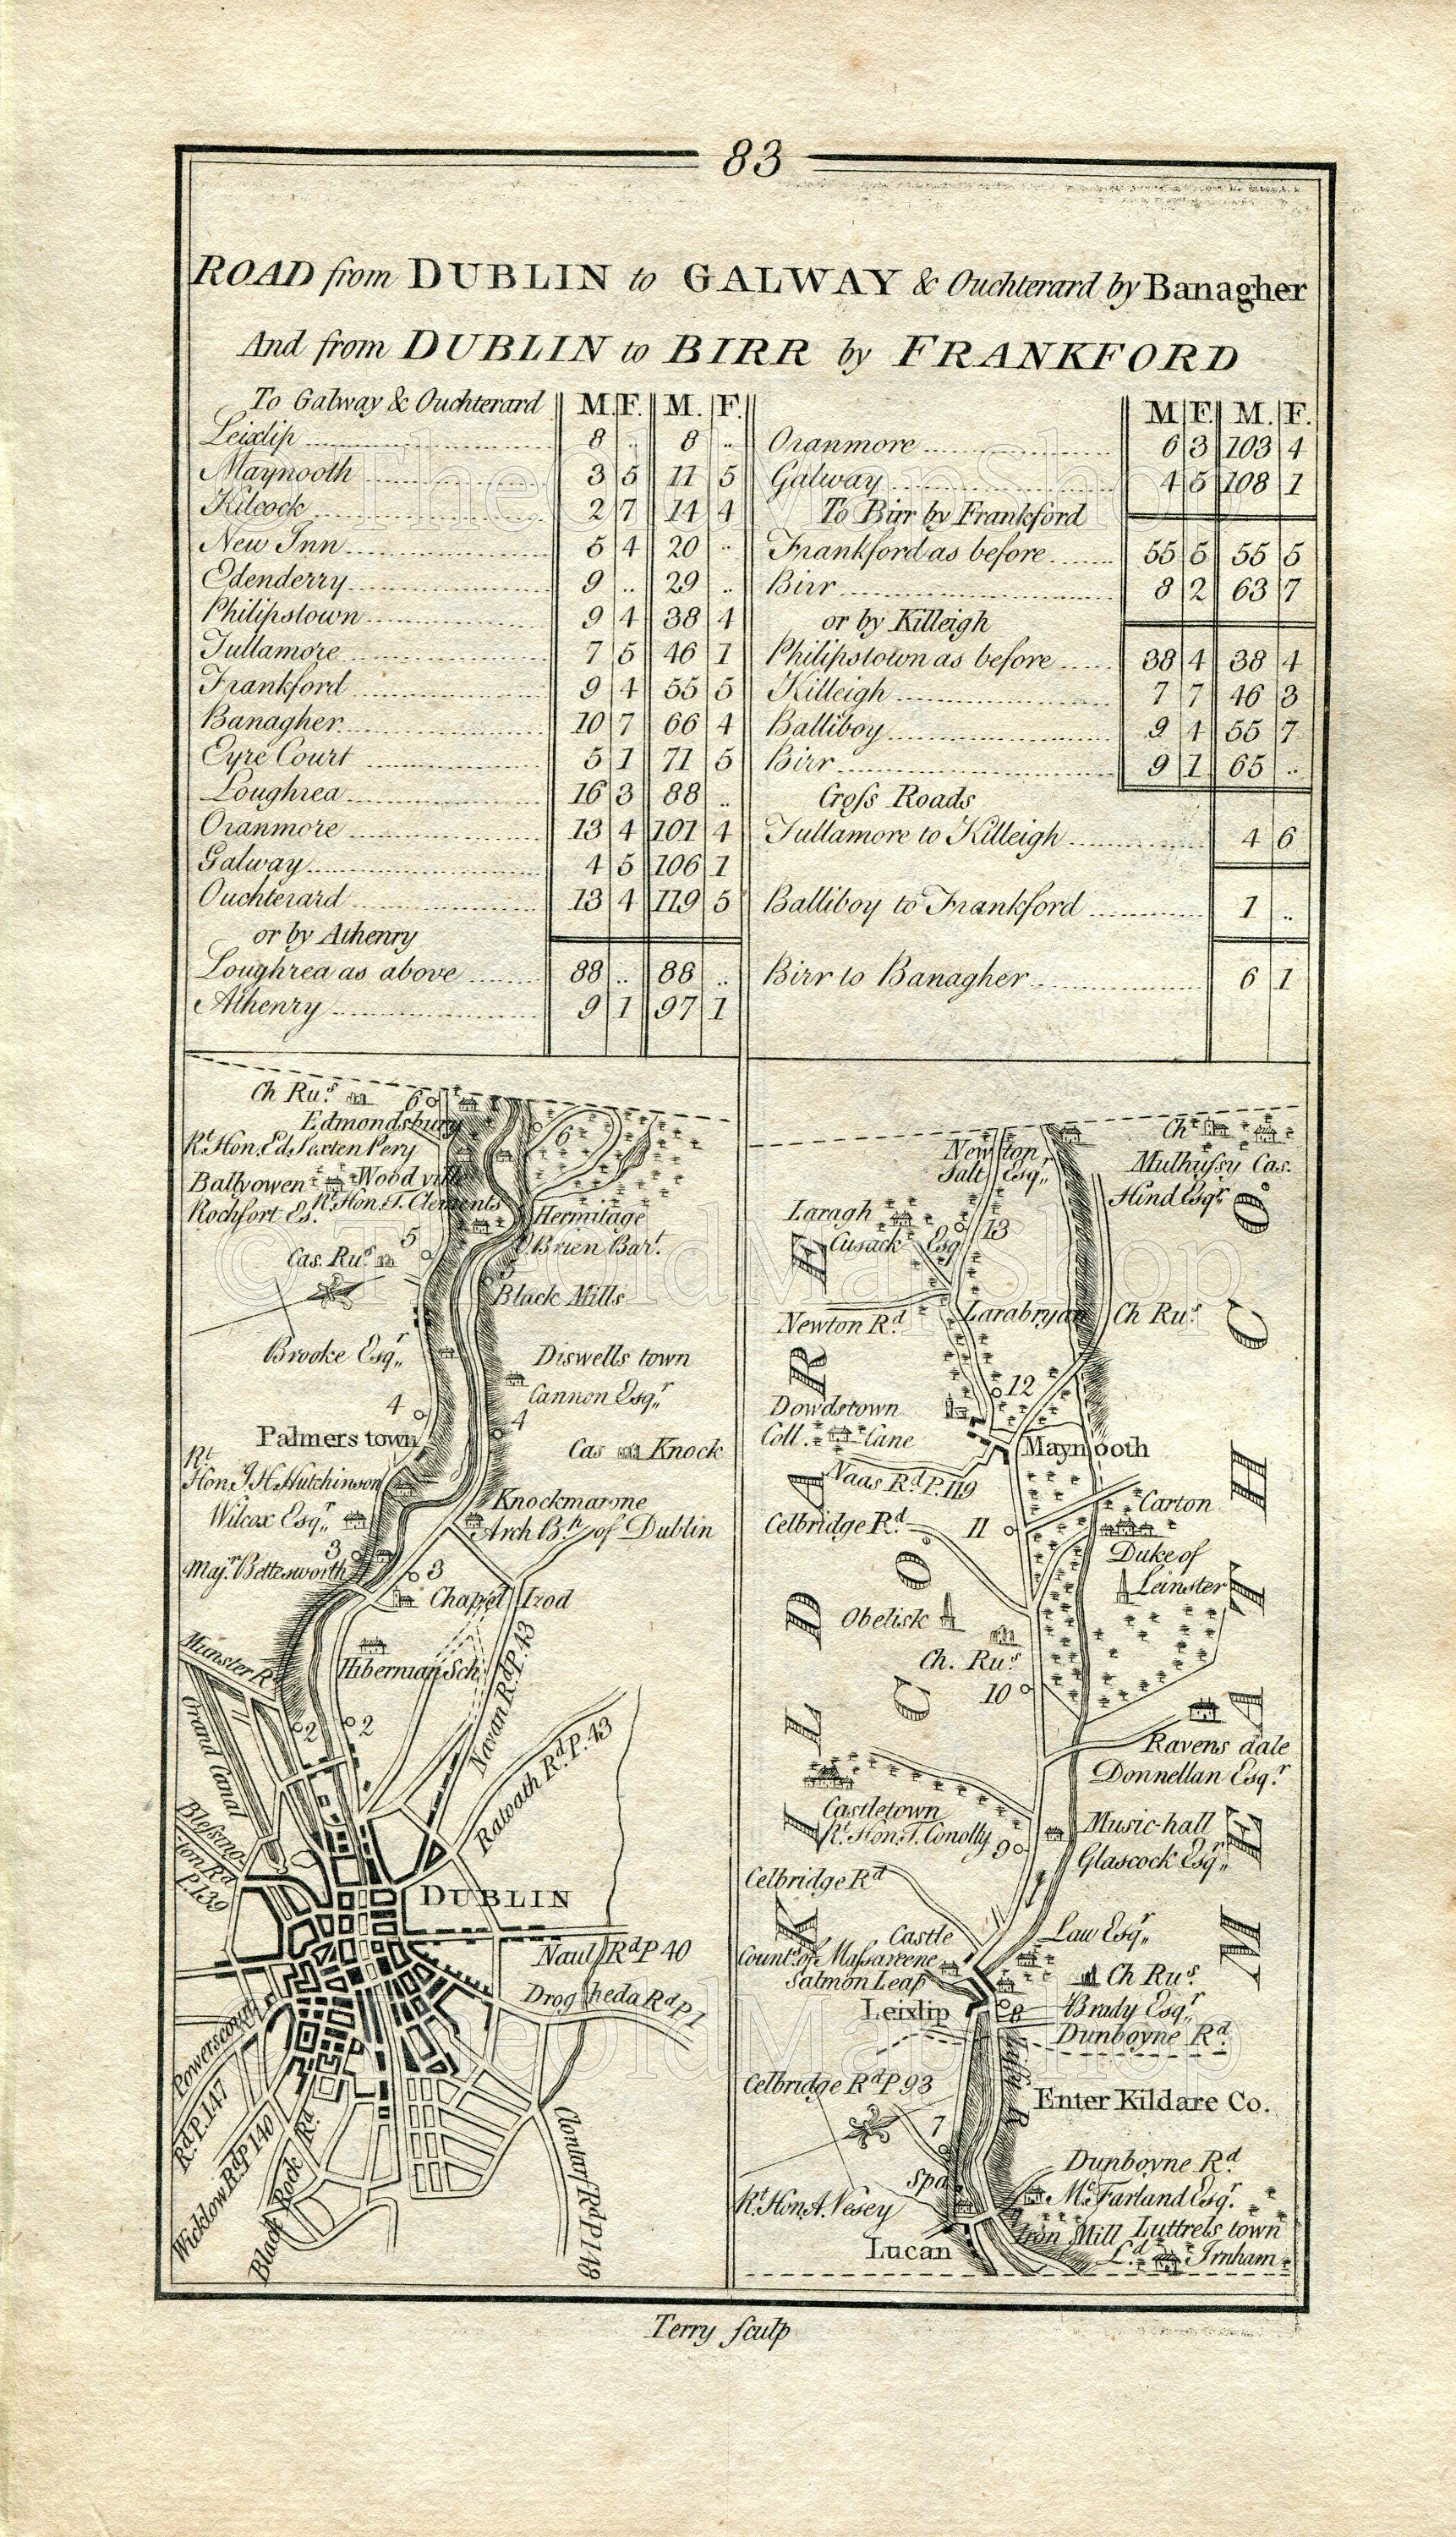 83
ROAD from DUBLIN to GALWAY & Ouchterard by Banagher
And from DUBLIN to BIRR by FRANKFORD
To Galway & Ouchterard M. F. M. F.
Leixlip 8 .. 8 ..
Maynooth 3 5 11 5
Kilcock 2 7 14 4
New Inn 5 4 20 ..
Edenderry 9 .. 29 ..
Philipstown 9 4 38 4
Tullamore 7 5 46 1
Frankford 9 4 55 5
Banagher 10 7 66 4
Eyre Court 5 1 71 5
Loughrea 16 3 88 ..
Oranmore 13 4 101 4
Galway 4 5 106 1
Ouchterard 13 4 119 5
or by Athenry
Loughrea as above 88 .. 88 ..
Athenry 9 1 97 1
M F. M. F.
Oranmore 6 3 103 4
Galway 4 5 108 1
To Birr by Frankford
Frankford as before 55 5 55 5
Birr 8 2 63 7
or by Killeigh
Philipstown as before 38 4 38 4
Killeigh 7 7 46 3
Balliboy 9 4 55 7
Birr 9 1 65 ..
Croſs Roads
Tullamore to Killeigh 4 6
Balliboy to Frankford 1 ..
Birr to Banagher 6 1
Ch Ru.s
6
Edmondsbury
Rt. Hon. Ed. Sexten Pery
6
Ballyowen
Wood ville
Rochfort Es.
Rt. Hon. T. Clements
Hermitage
O Brien Bart.
5
Cas. Ru.s
5
Black Mills
Brooke Esqr.
Diswells town
Cannon Esqr.
4
4
Palmers town
Cas Knock
Rt.
Hon. J. H. Hutchinson
Knockmarone
Wilcox Esqr.
Arch Bp. of Dublin
3
Majr. Bettesworth
3
Chappel Izod
Munster Rd.
Hibernian Sch.
Navan Rd. P. 43
2
2
Grand Canal
Ratoath Rd. P. 43
Bleſsing-
ton Rd
P. 139
DUBLIN
Naul Rd P 40
Drogheda Rd P 1
Powerscourt
Rd P. 147
Wicklow Rd P 140
Black Rock Rd.
Clontarf Rd P 148
Newton
Salt Esqr.
Chl.
Mulhuſsy Cas.
Hind Esqr.
Laragh
Cusack Esq
13
Newton Rd.
Larabryan
Ch Ru.s
12
Dowdstown
Coll. Cane
Maynooth
Naas Rd. P. 119
Carton
Celbridge Rd.
11
Duke of
Leinster
Obelisk
Ch. Ru.s
10
Ravens dale
Donnellan Esqr.
Castletown
Rt. Hon. T. Conolly
Music-hall
9
Glascock Esqr.
Celbridge Rd
Castle
Law Esqr.
Counts. of Maſsareene
Salmon Leap
Ch Ru.s
Leixlip
8
Brady Esqr.
Dunboyne Rd.
Liffy R
Celbridge Rd P 93
Enter Kildare Co.
7
Dunboyne Rd.
Spa
Mc. Farland Esqr.
Rt. Hon. A. Vesey
Iron Mill
Luttrels town
Lucan
Ld. Irnham
KILDARE
CO.
MEATH CO.
Terry sculp
© TheOldMapShop
© TheOldMapShop
© TheOldMapShop